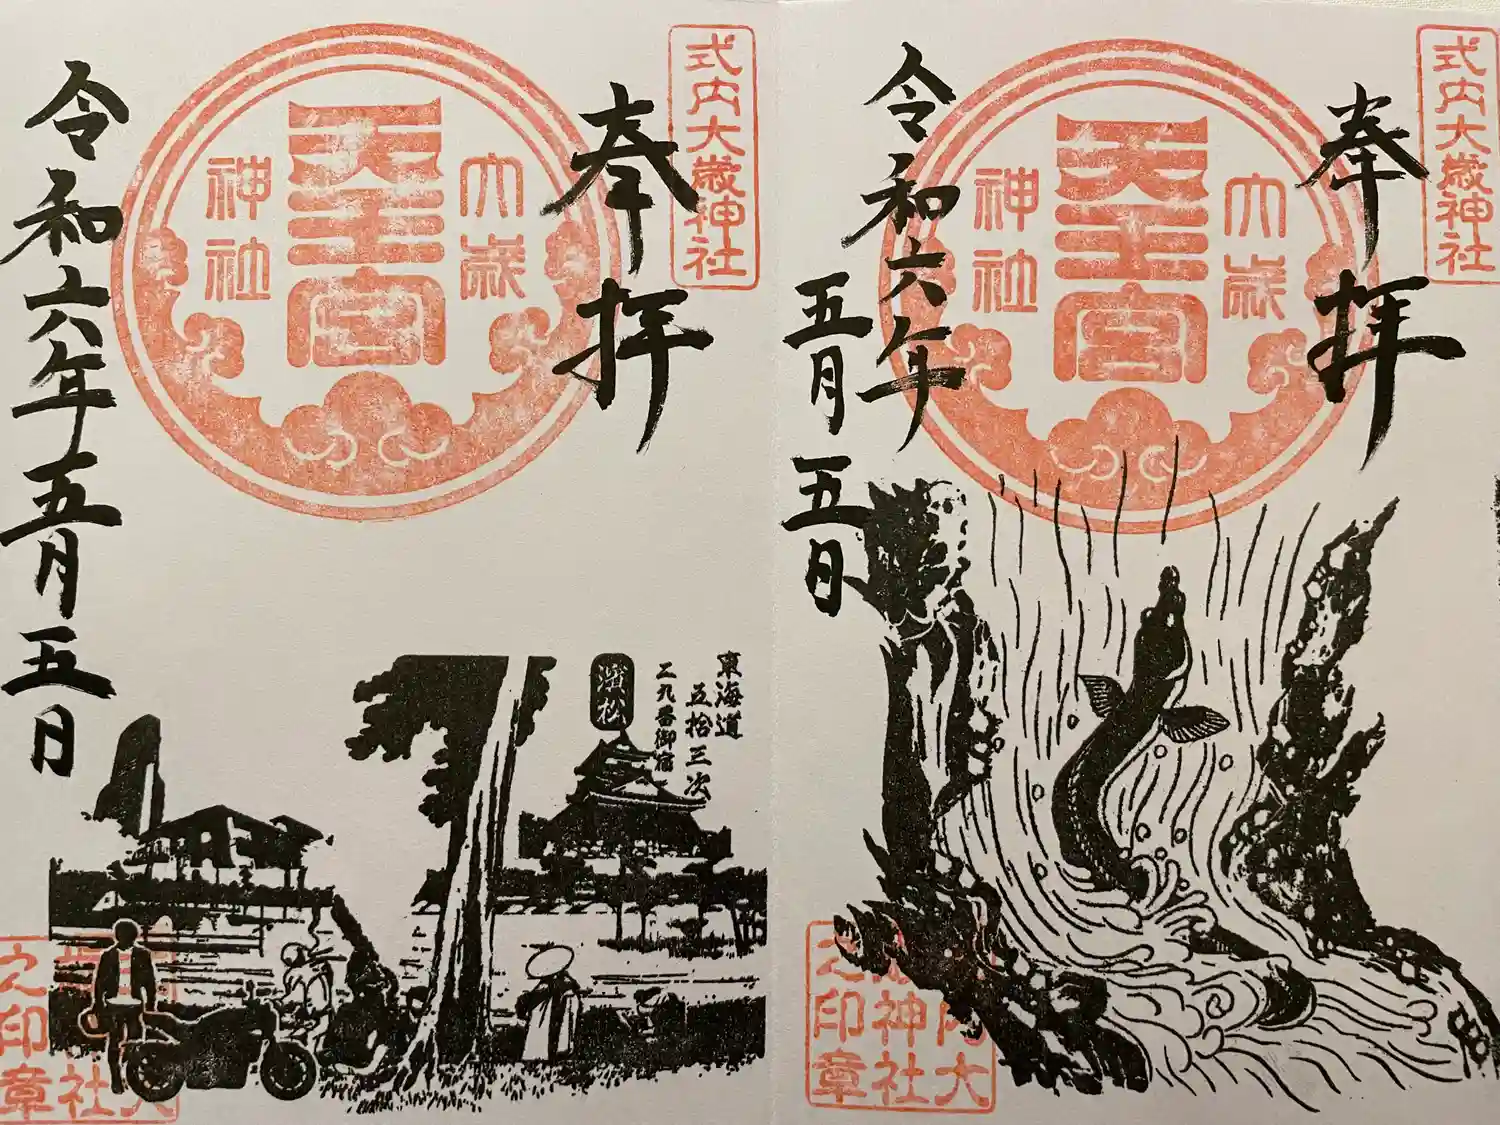 式内大歳神社
奉拝
大歳
天王宮
神社
令和六年五月五日
東海道
五拾三次
二九番御宿
濱松
之印章
式内大歳神社
奉拝
大歳
天王宮
神社
令和六年
五月五日
内大
神社
之印章